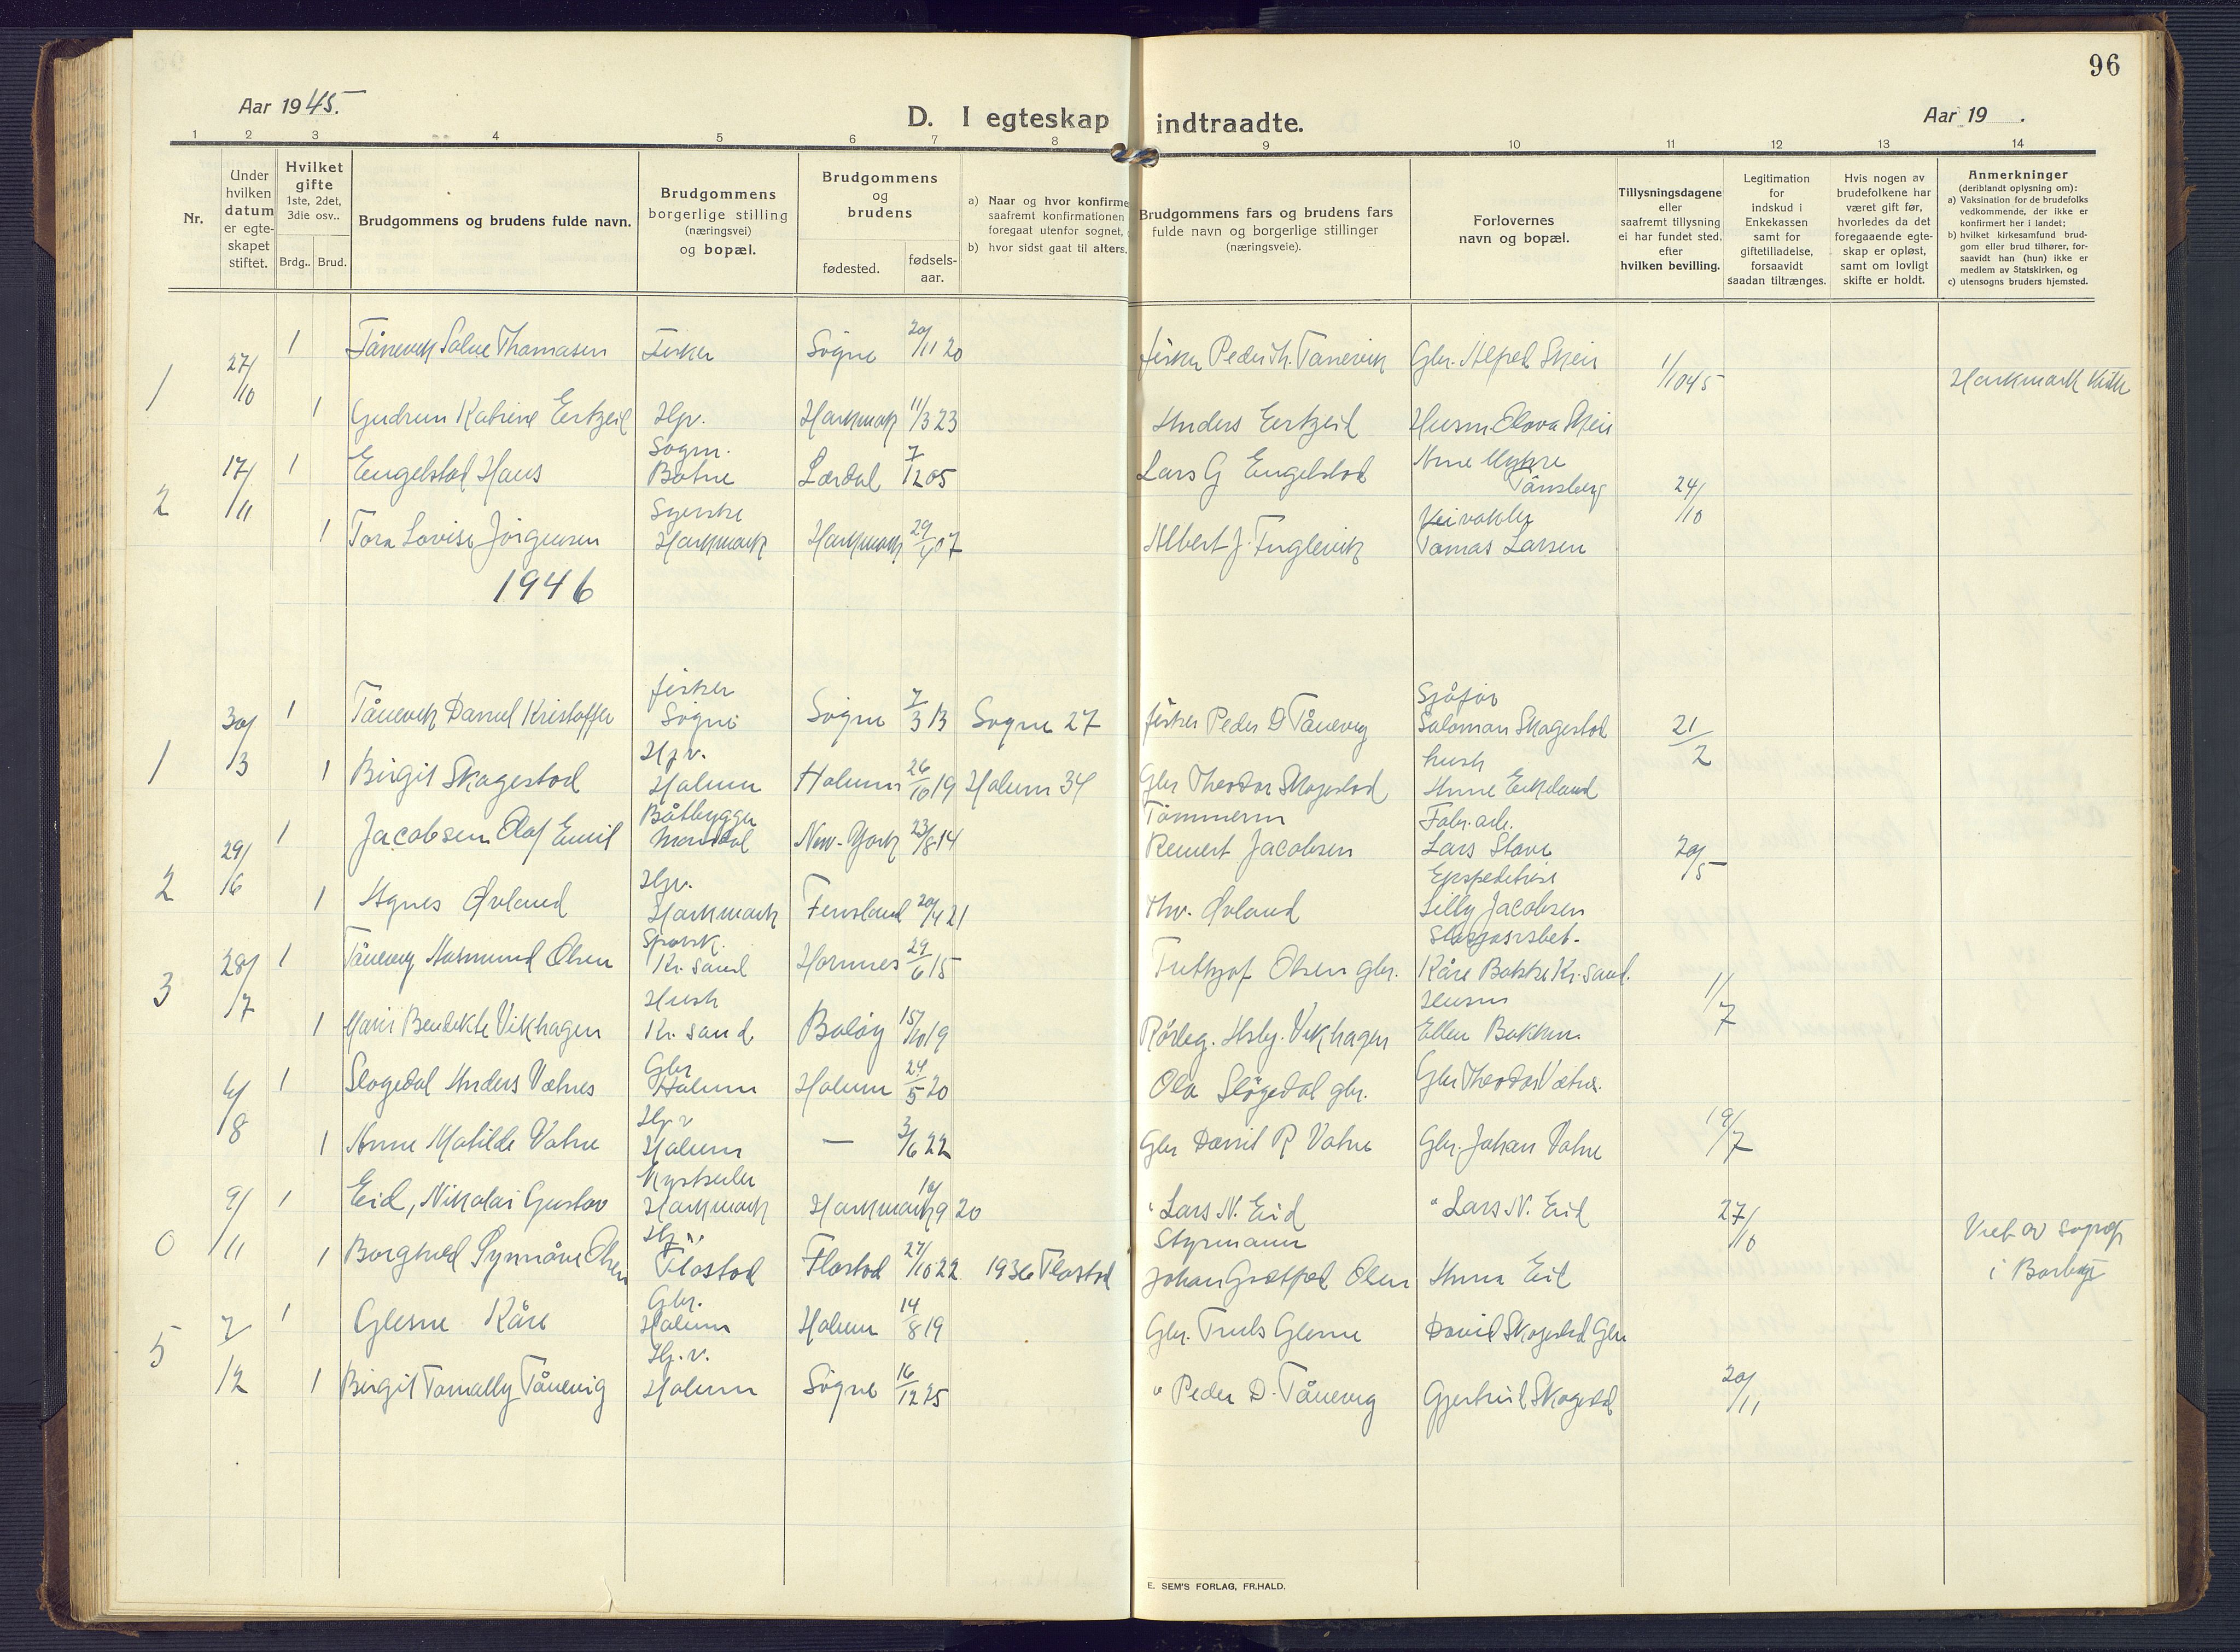 96
Aar 1945.
D. I egteskap indtraadte.
Aar 19 .
1 2 3 4 5 6 7 8 9 10 11 12 13 14
Nr.
Under hvilken datum er egte-skapet stiftet.
Hvilket gifte 1ste, 2det, 3die osv..
Brdg.. Brud.
Brudgommens og brudens fulde navn.
Brudgommens borgerlige stilling (næringsvei) og bopæl.
Brudgommens og brudens
fødested.
fødsels-aar.
a) Naar og hvor konfirme
saafremt konfirmationen
foregaat utenfor sognet,
b) hvor sidst gaat til alters.
Brudgommens fars og brudens fars
fulde navn og borgerlige stillinger
(næringsveie).
Forlovernes
navn og bopæl.
Tillysningsdagene
eller
saafremt tillysning
ei har fundet sted.
efter
hvilken bevilling.
Legitimation
for
indskud i
Enkekassen
samt for
giftetilladelse,
forsaavidt
saadan tiltrænges.
Hvis nogen av
brudefolkene har
været gift før,
hvorledes da det
foregaaende egte-
skap er opløst,
samt om lovligt
skifte er holdt.
Anmerkninger
(deriblandt oplysning om):
a) Vaksination for de brudefolks
vedkommende, der ikke er
konfirmert her i landet;
b) hvilket kirkesamfund brud-
gom eller brud tilhører, for-
saavidt han (hun) ikke er
medlem av Statskirken, og
c) utensogns bruders hjemsted.
1 27/10 1 Tånevik Salve Thomasen Fisker Søgne 20/11 20 fisker Peder Th. Tånevik Gbr. Alfred Skeie 1/10 45 Harkmark
1 Gudrun Katrine Ertzeid Hgv. Harkmark 11/3 23 Anders Ertzeid Husm. Olava Skeie
2 17/11 1 Engelstad Hans Sogn. Botne Lærdal 7/12 05 Lars G Engelstad Arne Tønsberg 24/10
1 Tora Lovise Jørgensen Harkmark Harkmark 29/ 07 Albert J. Fuglevik Veivokter Tomas Larsen
1946
1 30/3 1 Tånevik Daniel Kristoffer fisker Søgne Søgne 7/3 13 Søgne 27 fisker Peder D Tånevig Sjåfør Saloman Skagestad 21/2
1 Birgit Skagestad Hgv. Halum Holum 26/10 19 Holum 34 Gbr Theodor Skagestad hush Anne Eikeland
2 29/6 1 Jacobsen Olaf Emil Båtbygger Mandal New-York 23/8 14 Tømmerm Reinert Jacobsen Fabr. arb. Lars Stave 20/5
1 Agnes Øvland Hgv. Harkmark Finsland 20/4 21 Thv. Øvland Ekspeditrise Lilly Jacobsen
3 28/7 1 Tånevig Aasmund Olsen Kr. sand Hornnes 29/6 15 Fritjof Olsen gbr. Kåre Kr. sand. 1/7
1 Marie Bendikte Vikhagen Hush Kr. sand Bolsøy 15/10 19 Rørleg. Vikhagen Husm Ellen Bakken
4/8 1 Slogedal Anders Vatnes Gbr Halum Holum 24/5 20 Ola Sløgedal gbr. Gbr Theodor Vatne. 19/7
1 Anne Matilde Vatne Hgv Halum — 3/6 22 Gbr Daniel R Vatne Gbr. Johan Vatne
0 9/11 1 Eid, Nikolai Gustav Harkmark Harkmark 10/9 20 " Lars N. Eid " Lars N. Eid 27/10
1 Borghild Synnøve Olsen Hgv. Flostad Flostad 27/10 22 1936 Flostad Styrmann Johan Olsen Anna Eid Viet av sognep i
5 7/12 1 Glesne Kåre Gbr. Halum Holum 14/8 19 Gbr. Truls Glesne David Skagestad Gbr
1 Birgit Tomally Tånevig Hg.v. Halum Søgne 16/12 25 " Peder D. Tånevig Gjertrud Skagestad 20/11
E. SEM'S FORLAG, FR.HALD.